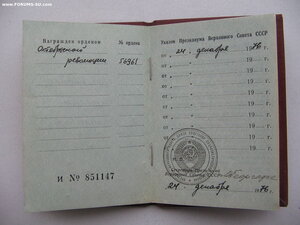 www.FORUMS-SU.com
Награжден орденом
№ ордена
Октябрьской
революции
56961
И № 851147
Указом Президиума Верховного Совета СССР
от 24. декабря 1976
от 19
от 19
от 19
от 19
от 19
от 19
от 19
М. П.
Секретарь Президиума
Верховного Совета СССР
24. декабря 1976 г.